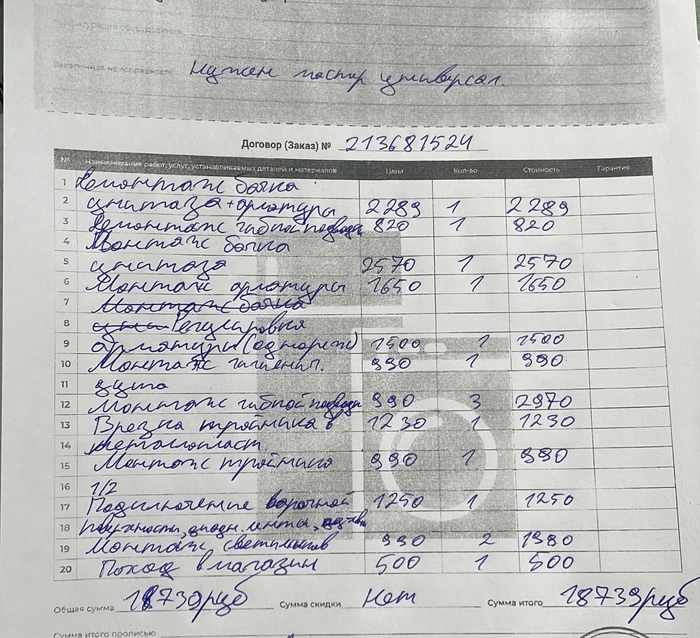 Заявленная неисправность Нужен мастер универсал.
Договор (Заказ) № 213681524
№ Наименование работ, услуг, устанавливаемых деталей и материалов Цена Кол-во Стоимость Гарантия
1 Демонтаж бачка
2 унитаза + арматуры 2289 1 2289
3 Демонтаж гибкой подводк 820 1 820
4 Монтаж бачка
5 унитаза 2570 1 2570
6 Монтаж арматуры 1650 1 1650
7 Монтаж бачка
8 уни Регулировка
9 арматуры (однореж) 1500 1 1500
10 Монтаж гигиенич. 990 1 990
11 душа
12 Монтаж гибкой подводк 990 3 2970
13 Врезка тройника в 1230 1 1230
14 металлопласт.
15 Монтаж тройника 990 1 990
16 1/2
17 Подключение варочной 1250 1 1250
18 поверхности, диодн. лента,
19 Монтаж светильников 990 2 1980
20 Поход в магазин 500 1 500
Общая сумма 18739руб Сумма скидки Нет Сумма итого 18739руб
Сумма итого прописью